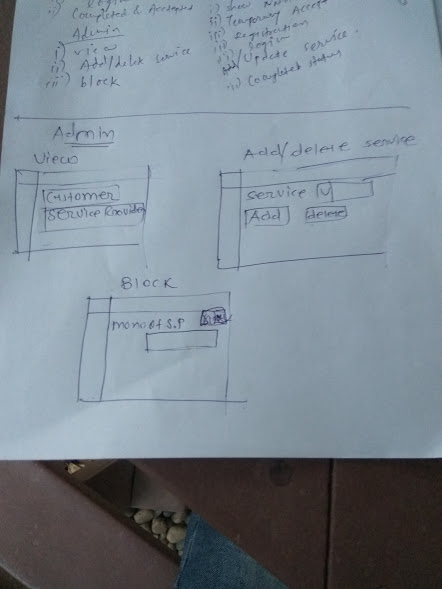 Completed & Accepted
Admin
i) view
ii) Add/delete service
iii) block
i) show
ii) Temporary Access
iii) Registration
iv) Login
Update service.
vi) Completed status
Admin
View
Customer
Service Provider
Add/delete service
Service V
Add delete
Block
mono of S.P